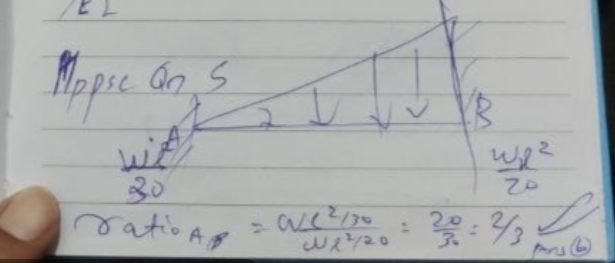 /EL
Mppsc Qn 5
A
B
wl²/30
wl²/20
ratio AB = wl²/30 / wl²/20 = 20/30 = 2/3
Ans (b)